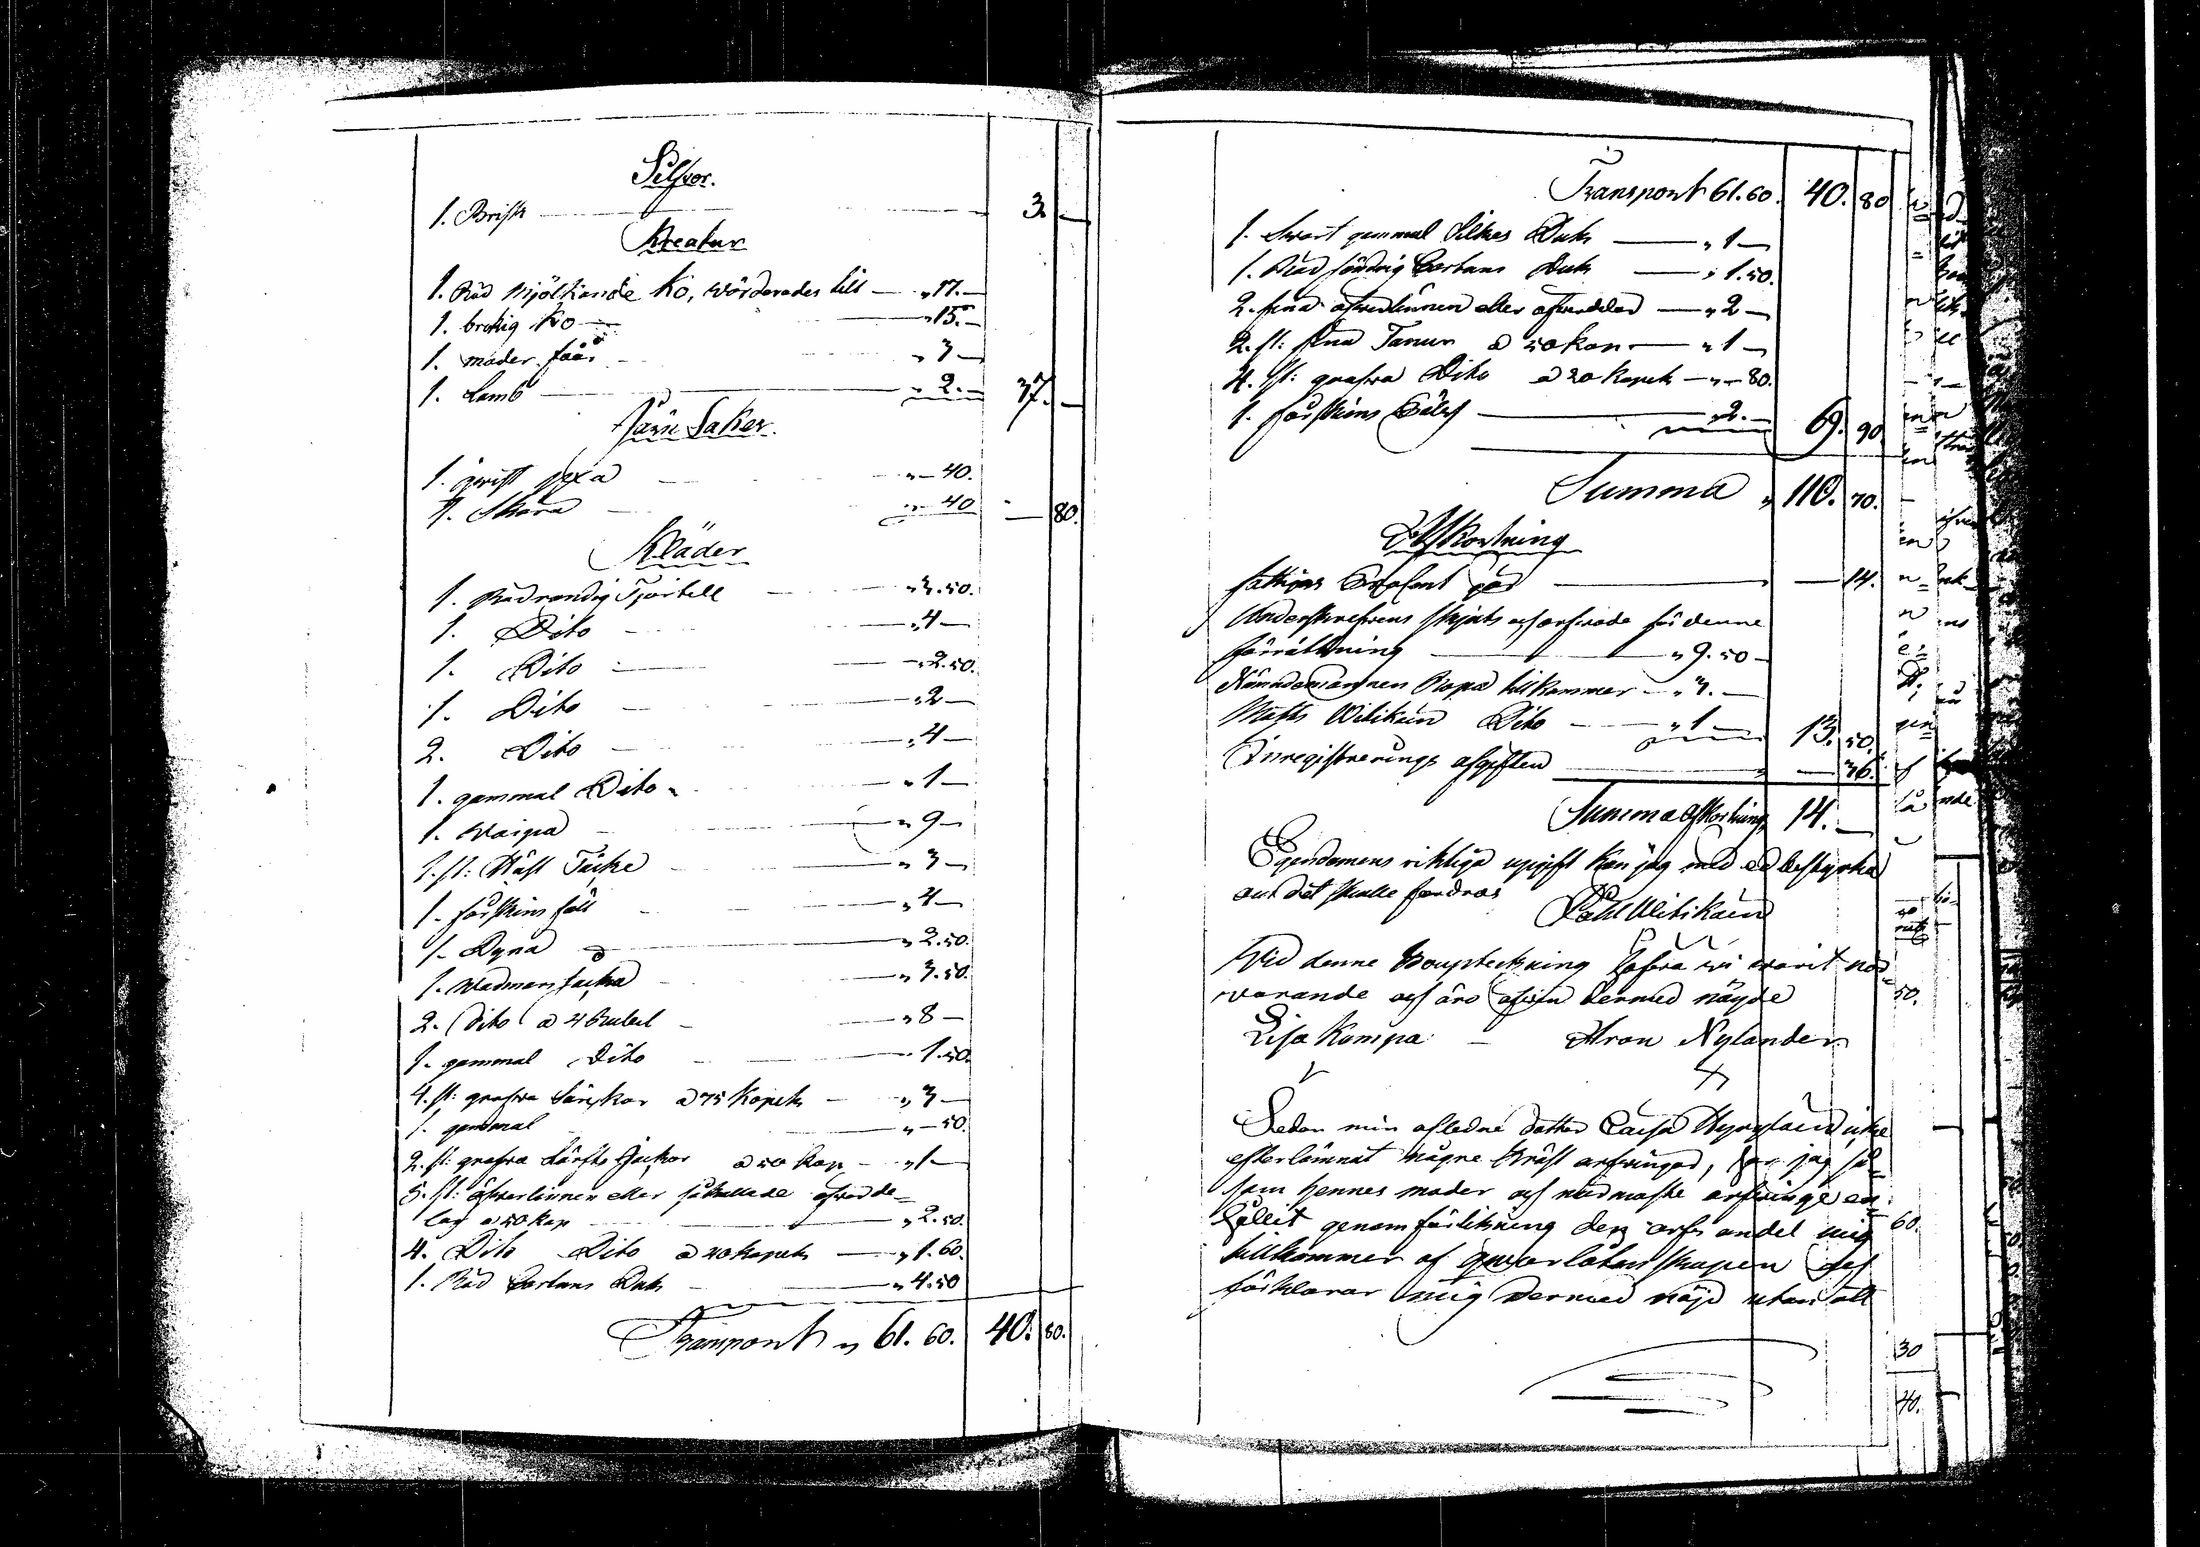 Silfver.
1. Brisk 3. —
Kreatur
1. Röd Mjölkande Ko, Wärderades till — „ 17. —
1. brokig Ko — „ 15. —
1. moder fåår „ 3 —
1. Lamb — „ 2. — 37. —
Järn Saker.
1. qvist yxa „ — 40.
1. Skära „ — 40 — 80.
Kläder
1. Rödrandig Tjortell „ 3. 50.
1. Dito — „ 4 —
1. Dito — „ 2. 50.
1. Dito — „ 2 —
2. Dito — „ 4 —
1. gammal Dito „ 1 —
1. Waipa „ 9 —
1. st: Häst Täcke „ 3 —
1. fårskins fäll „ 4 —
1. Dyna „ 2. 50.
1. Wadmars jacka „ 3. 50.
2. Dito a 4 Rubel — „ 8 —
1. gammal Dito — 1. 50.
4. st: grofva Särskar a 75 Kopek — „ 3 —
1. gammal „ — 50.
2. st: grofva Lärfts Jackor a 50 Kop — „ 1 —
5. st: öfverlinnen eller så kallade öfverde=
lar a 50 Kop „ 2. 50.
4. Dito Dito a 40 Kopek — „ 1. 60.
1. Röd Cartuns Duk — „ 4. 50
Transport „ 61. 60. 40. 80.
Transport 61. 60. 40. 80
1. Swart gammal Silkes Duk — „ 1 —
1. Röd söndrig Cartuns Duk — „ 1. 50.
2. fina öfverlinnen eller öfverdelar — „ 2 —
2. st: fina a 50 Kop — „ 1 —
4. st: grofva Dito a 20 Kopek — „ — 80.
1. fårskins — „ 2. — 69. 90
Summa „ 110. 70.
Afkortning
fattigas Procent gör — — 14.
Underskrefvens skjuts och arfvode för denne
förrättning — „ 9. 50 —
Nämndemannen Ropa tillkommer — „ 3. —
Matts Witikain Dito — „ 1 — 13. 50.
Inregistrerings afgiften — — 36.
Summa afkortning 14. —
Egendomens riktiga upgift kan jag med ed bestyrka
om det skulle fordras
Påhl Witikain
Wid denne Bouptekning hafva vi warit när=
warande och äro äfven dermed nöyde
Lisa Kompa — Aron Nylander
Sedan min afledne dotter Caisa Hyvylain icke
efterlämnat någre bröst arfvingar, har jag så=
som hennes moder och närmaste arfvinge er=
hållit genom förlikning den arfs andel mig
tillkommer af qvarlåtenskapen och
förklarar mig dermed nöjd utan att